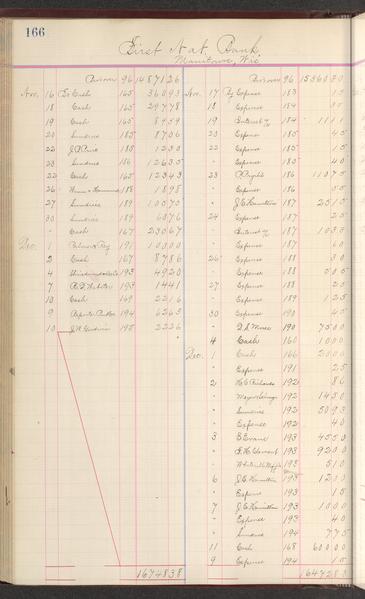 166
First Nat. Bank,
Manitowoc, Wis.
Bro't over 96 1487126
Nov. 16 To Cash 165 36093
18 Cash 165 29778
19 Cash 165 8459
20 Sundries 185 8706
22 185 1230
23 Sundries 186 12635
22 Cash 165 12343
26 188 1898
27 Sundries 189 10070
30 Sundries 189 6076
" Cash 167 23067
Dec. 1 191 10300
2 Cash 167 8786
4 193 4920
7 193 1441
10 Cash 169 2216
9 194 6263
10 195 2226
1674838
Bro't over 96 1536030
Nov. 17 By Expense 183 15
18 Expense 184 35
19 Interest 184 1111
20 Expense 185 45
22 Expense 185 15
" Expense 185 40
23 186 11075
" Expense 186 55
" J.E. Hamilton 187 2515
24 Expense 187 25
" Interest 187 1033
" Expense 187 60
26 Expense 188 30
" Expense 188 515
27 Expense 188 25
" Expense 189 125
30 Expense 190 45
" Morse 190 7500
4 Cash 160 1000
Dec. 1 Cash 166 2000
" Expense 191 25
2 Richards 192 86
" 192 1450
" Sundries 192 5093
" Expense 192 40
3 Evans 193 4550
" Clement 193 9200
" 193 510
6 J.E. Hamilton 193 1200
" Expense 193 15
7 J.E. Hamilton 193 1000
" Expense 193 40
" Sundries 194 775
11 Cash 168 60000
9 Expense 194 15
1647283